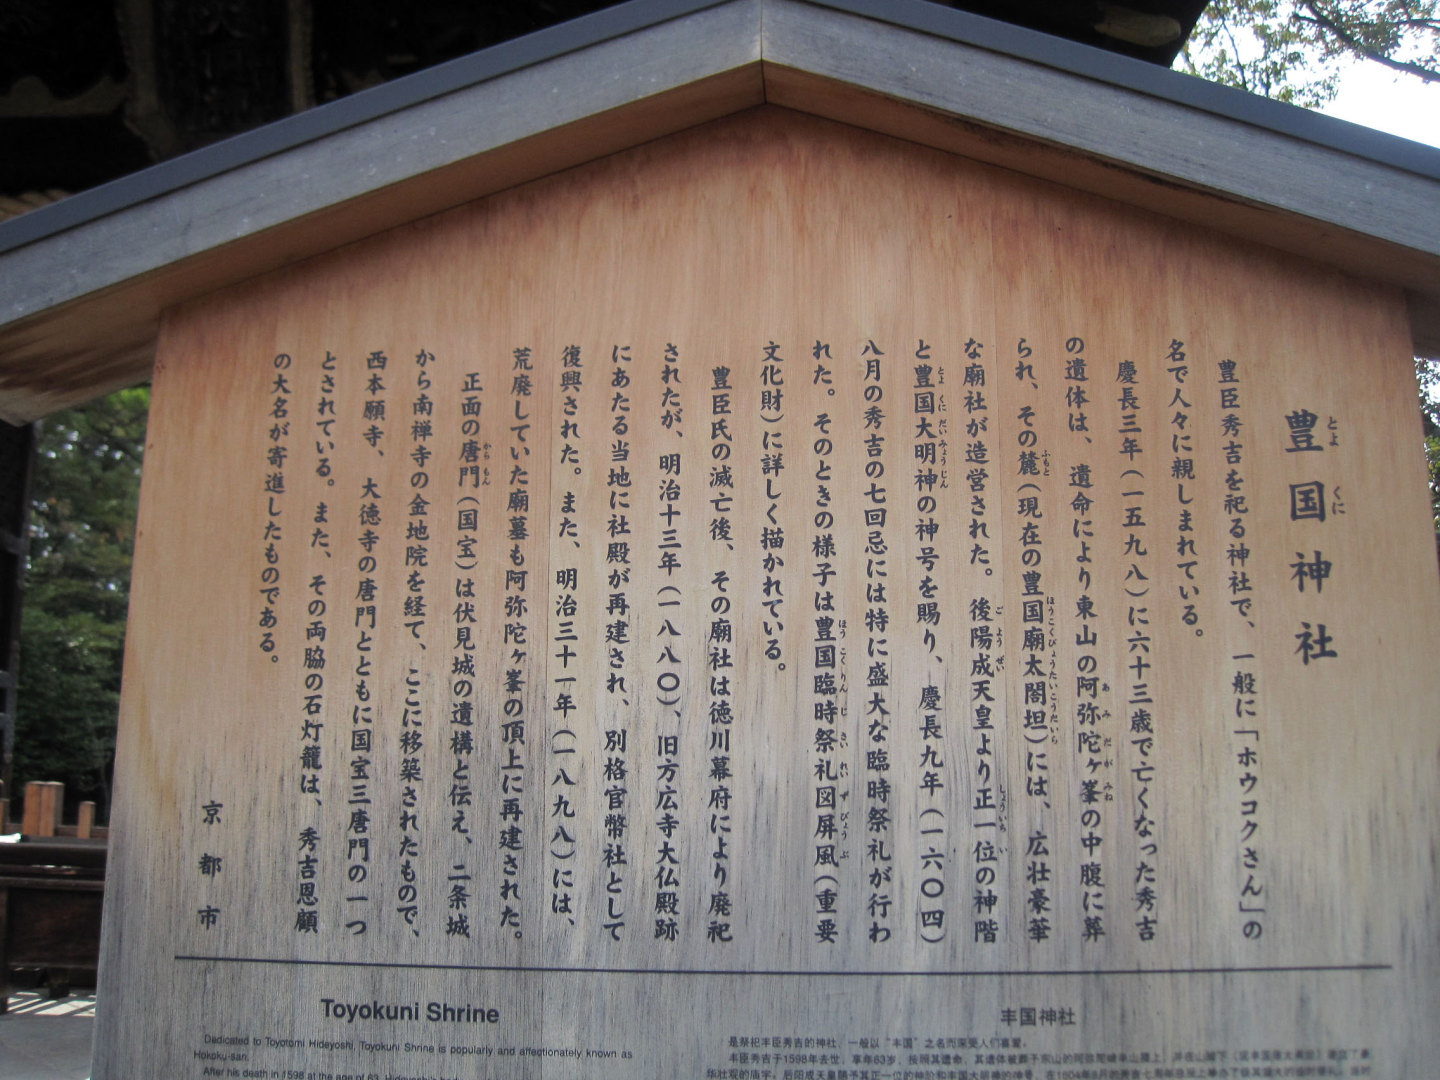 豊国神社
豊臣秀吉を祀る神社で、一般に「ホウコクさん」の
名で人々に親しまれている。
慶長三年（一五九八）に六十三歳で亡くなった秀吉
の遺体は、遺命により東山の阿弥陀ヶ峯の中腹に葬
られ、その麓（現在の豊国廟太閤坦）には、広壮豪華
な廟社が造営された。後陽成天皇より正一位の神階
と豊国大明神の神号を賜り、慶長九年（一六〇四）
八月の秀吉の七回忌には特に盛大な臨時祭礼が行わ
れた。そのときの様子は豊国臨時祭礼図屏風（重要
文化財）に詳しく描かれている。
豊臣氏の滅亡後、その廟社は徳川幕府により廃祀
されたが、明治十三年（一八八〇）、旧方広寺大仏殿跡
にあたる当地に社殿が再建され、別格官幣社として
復興された。また、明治三十一年（一八九八）には、
荒廃していた廟墓も阿弥陀ヶ峯の頂上に再建された。
正面の唐門（国宝）は伏見城の遺構と伝え、二条城
から南禅寺の金地院を経て、ここに移築されたもので、
西本願寺、大徳寺の唐門とともに国宝三唐門の一つ
とされている。また、その両脇の石灯籠は、秀吉恩顧
の大名が寄進したものである。
京都市
Toyokuni Shrine
Dedicated to Toyotomi Hideyoshi, Toyokuni Shrine is popularly and affectionately known as
Hokoku-san.
After his death in 1598 at the age of 63, Hideyoshi's
丰国神社
是祭祀丰臣秀吉的神社，一般以“丰国”之名而深受人们喜爱。
丰臣秀吉于1598年去世，享年63岁，按照其遗命，其遗体被葬于东山的阿弥陀峰半山腰上，